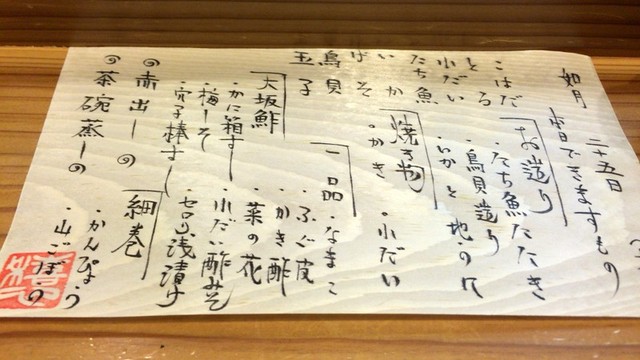 如月 二十五日
本日できますもの
こはだ
とろ
小だい
たち魚
いか
ばそ
鳥貝
玉子
お造り
・たち魚たたき
・鳥貝造り
・いかと地のり
焼き物
・かき
・小だい
一品
・なまこ
・ふぐ皮
・かき酢
・菜の花
・小だい酢みそ
・セロリ浅漬け
大坂鮓
・かに箱すし
・梅しそ
・穴子棒すし
細巻
・かんぴょう
・山ごぼう
の赤出しの
の茶碗蒸しの